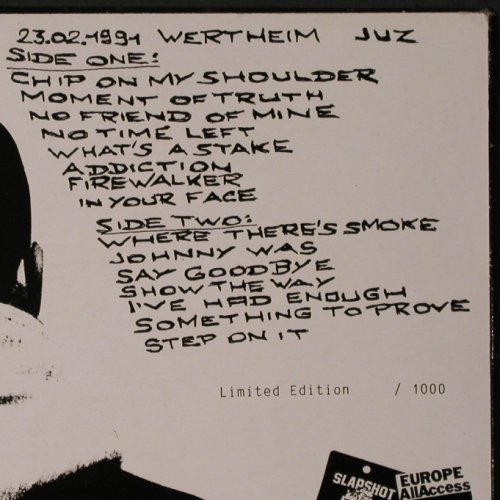 23.02.1991 WERTHEIM JUZ
SIDE ONE:
CHIP ON MY SHOULDER
MOMENT OF TRUTH
NO FRIEND OF MINE
NO TIME LEFT
WHAT'S A STAKE
ADDICTION
FIREWALKER
IN YOUR FACE
SIDE TWO:
WHERE THERE'S SMOKE
JOHNNY WAS
SAY GOODBYE
SHOW THE WAY
I'VE HAD ENOUGH
SOMETHING TO PROVE
STEP ON IT
Limited Edition / 1000
SLAPSHOT
EUROPE
AllAccess